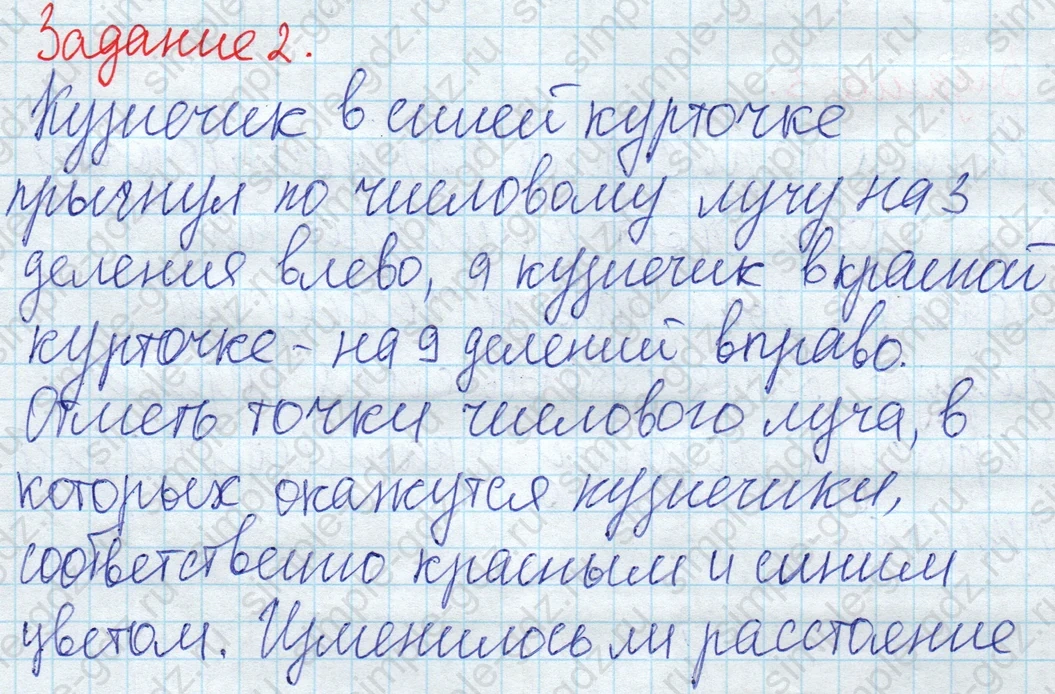 Задание 2.
Кузнечик в синей курточке
прыгнул по числовому лучу на 3
деления влево, а кузнечик в красной
курточке - на 9 делений вправо.
Отметь точки числового луча, в
которых окажутся кузнечики,
соответственно красным и синим
цветом. Изменилось ли расстояние